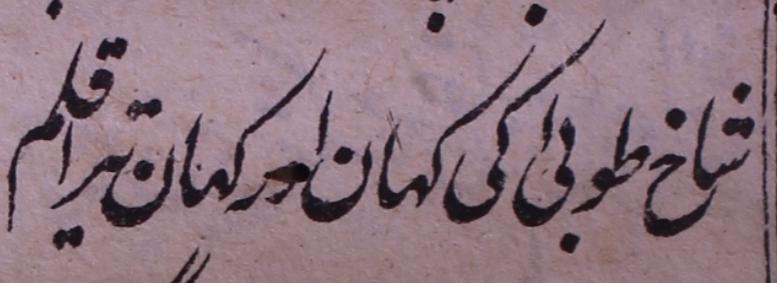 شاخ طوبیٰ کی کہاں اور کہاں تیرا قلم